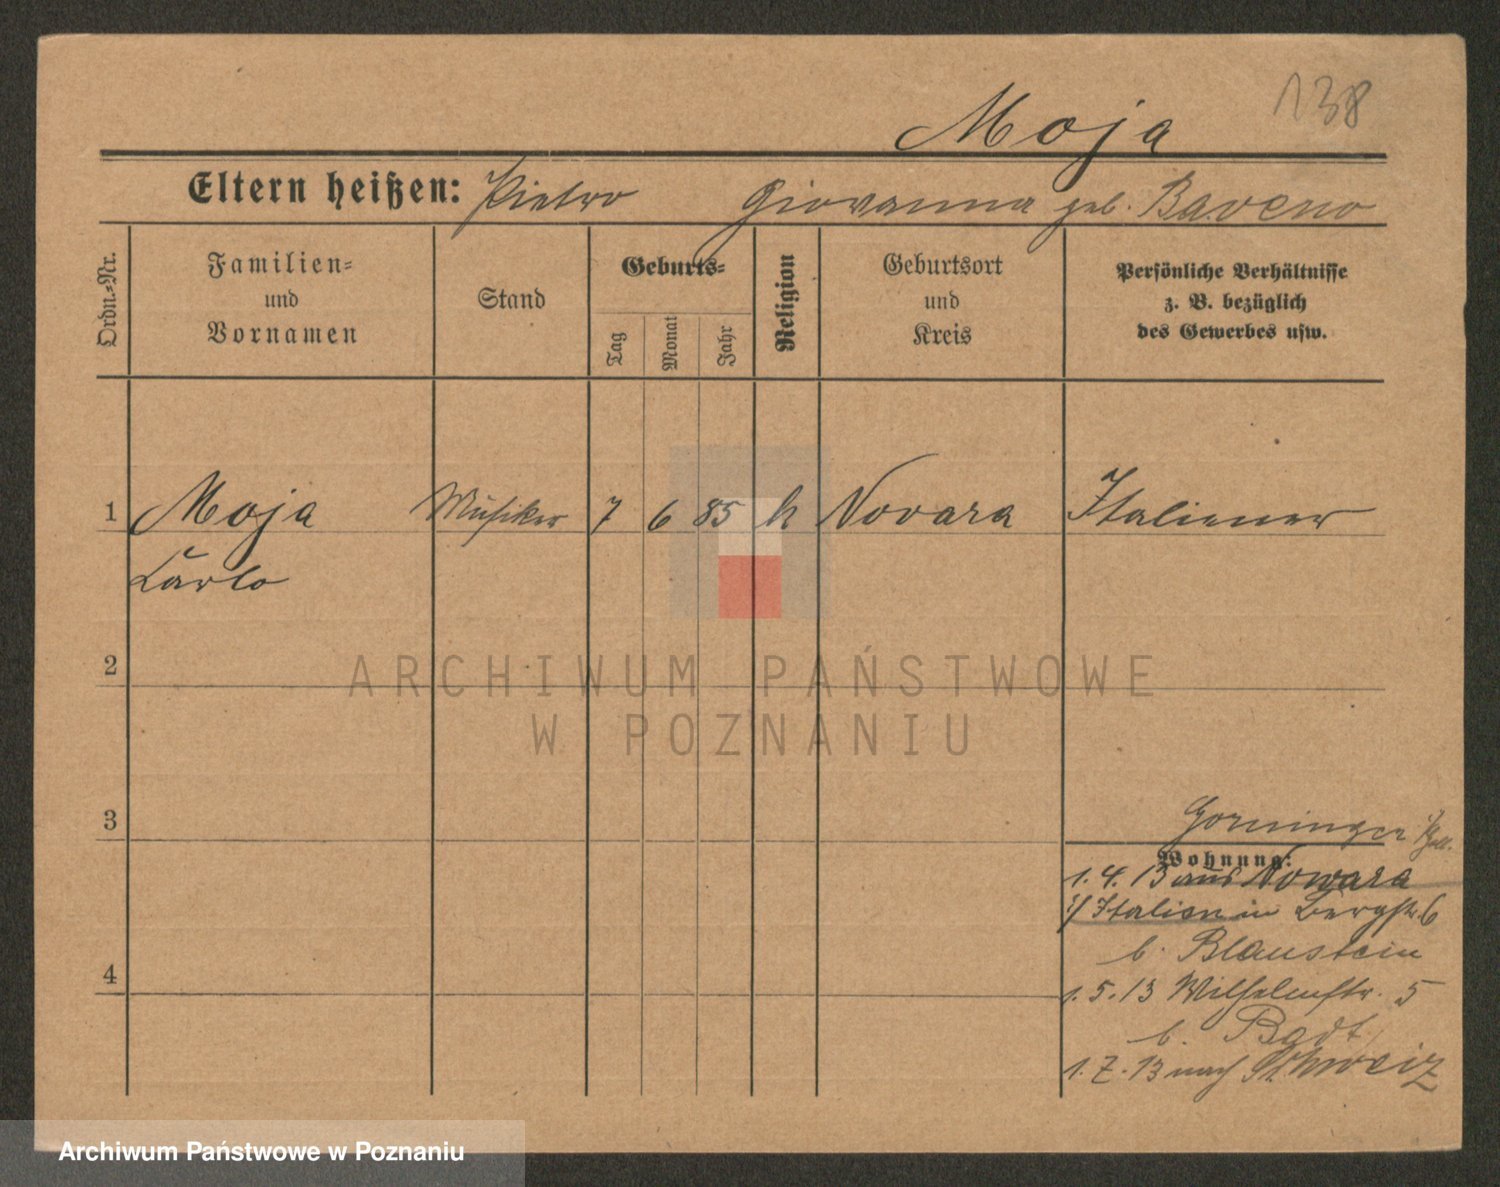 138
Moja
Eltern heißen: Pietro Giovanna geb. Baveno
Ordn.=Nr.
Familien=
und
Vornamen
Stand
Geburts=
Tag
Monat
Jahr
Religion
Geburtsort
und
Kreis
Persönliche Verhältnisse
z. B. bezüglich
des Gewerbes usw.
1 Moja Musiker 7 6 85 k Novara Italiener
Carlo
2
ARCHIWUM PAŃSTWOWE
W POZNANIU
3
Wohnung:
1.4.13 aus Nowara
i/ Italien in Bergstr. 6
b. Blaustein
4
1.5.13 Wilhelmstr. 5
b. Badt
1.7.13 nach Schweiz
Archiwum Państwowe w Poznaniu